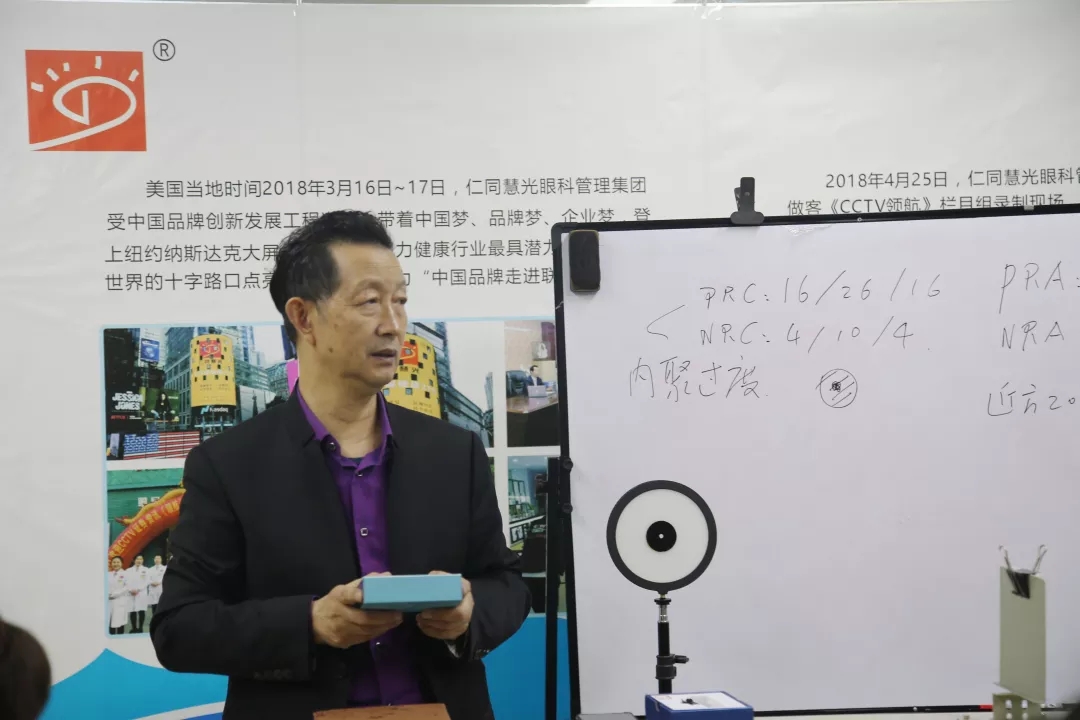 ®
美国当地时间2018年3月16日~17日，仁同慧光眼科管理集团
受中国品牌创新发展工程 带着中国梦、品牌梦、企业梦，登
上纽约纳斯达克大屏 力健康行业最具潜力
世界的十字路口点亮 “中国品牌走进联
2018年4月25日，仁同慧光眼科管
做客《CCTV领航》栏目组录制现场
JESSICA
JONES
PRC: 16/26/16
NRC: 4/10/4.
内聚过度.
PRA:
NRA
近方20